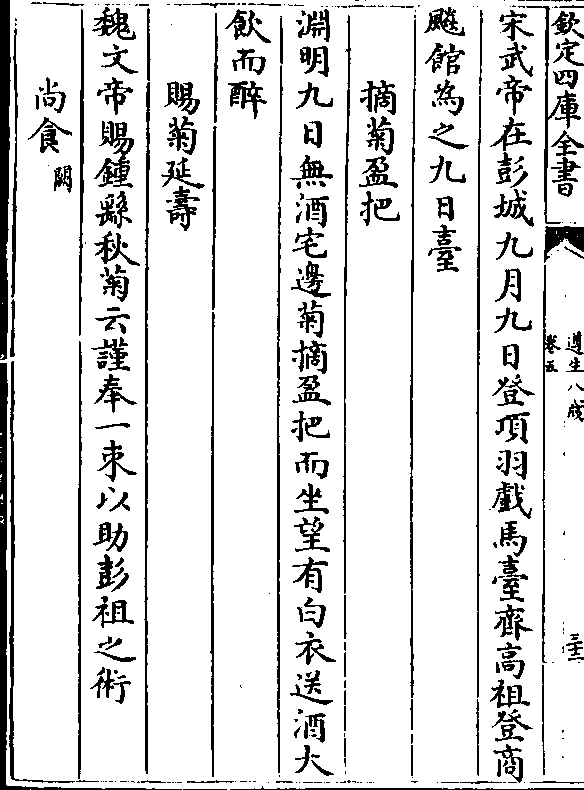 欽定四庫全書
遵生八牋
卷五
三十二
宋武帝在彭城九月九日登項羽戲馬臺齊高祖登商
飈館為之九日臺
摘菊盈把
淵明九日無酒宅邊菊摘盈把而坐望有白衣送酒大
飲而醉
賜菊延壽
魏文帝賜鍾繇秋菊云謹奉一束以助彭祖之術
尚食闕